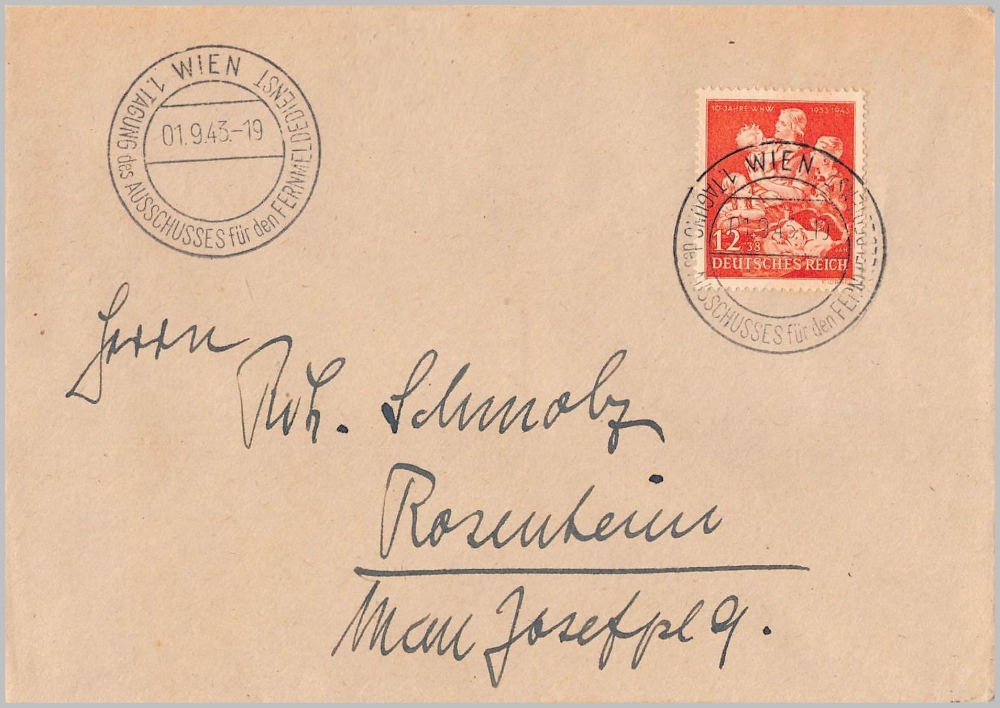 1. WIEN
1. TAGUNG des AUSSCHUSSES für den FERNMELDEDIENST
01.9.43.-19
10 JAHRE WHW 1933-1943
12+38
DEUTSCHES REICH
1. WIEN
1. TAGUNG des AUSSCHUSSES für den FERNMELDEDIENST
01.9.43.-19
Herrn
Rch. Schmolz
Rosenheim
Max Josefpl 9.